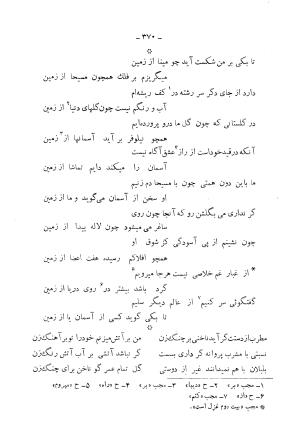 - ۳۷۰ -
*
تا بکی بر من شکست آید چو مینا از زمین
میگریزم بر فلک همچون مسیحا از زمین
دارد از جای دگر سر رشته در۱ کف ریشه‌ام
آب و رنگم نیست چون گلهای دنیا۲ از زمین
در گلستانی که چون گل ما درو پرورده‌ایم
همچو نیلوفر بر آید آسمانها۳ از زمین
آنکه در قید خود است از راز۴ عشق آگاه نیست
آسمان را میکند دایم تماشا از زمین
ما باین دون همتی چون با مسیحا دم زنیم
او سخن از آسمان می‌گوید و ما از زمین
گر نداری می بگلشن رو که آنجا چون روی
ساغر می میشود چون لاله پیدا از زمین
چون نشینم از پی آسودگی کز شوق او
همچو افلاکم رسیده هفت اعضا از زمین
* از غبار غم خلاصی نیست هر جا میرویم۵
گرد باشد بیشتر در۶ روی دریا از زمین
گفتگوئی سر کنیم۷ از عالم دیگر سلیم
تا بکی گوید کسی از آسمان یا از زمین
*
مطرب از دست گر آید ناخنی بر چنگ زن
من بر آتش میزنم خود را تو بر آهنگ زن
نسبتی با مشرب پروانه گر داری بست
گر نباشد آتشی بر آب آتش رنگ زن
بلبلان با هم نمیدانند غیر از دوستی
گل تمام عمر گو ناخن برای چنگ زن
۱- مجب «بر» ۲- ح «دیبا» ۳- مجب «آسمانی» ۴- ح «داه» ۵- ح «میروم»
۶- ح «از» ۷- مجب «کنم»
* مجب «بیت دوم غزل است»